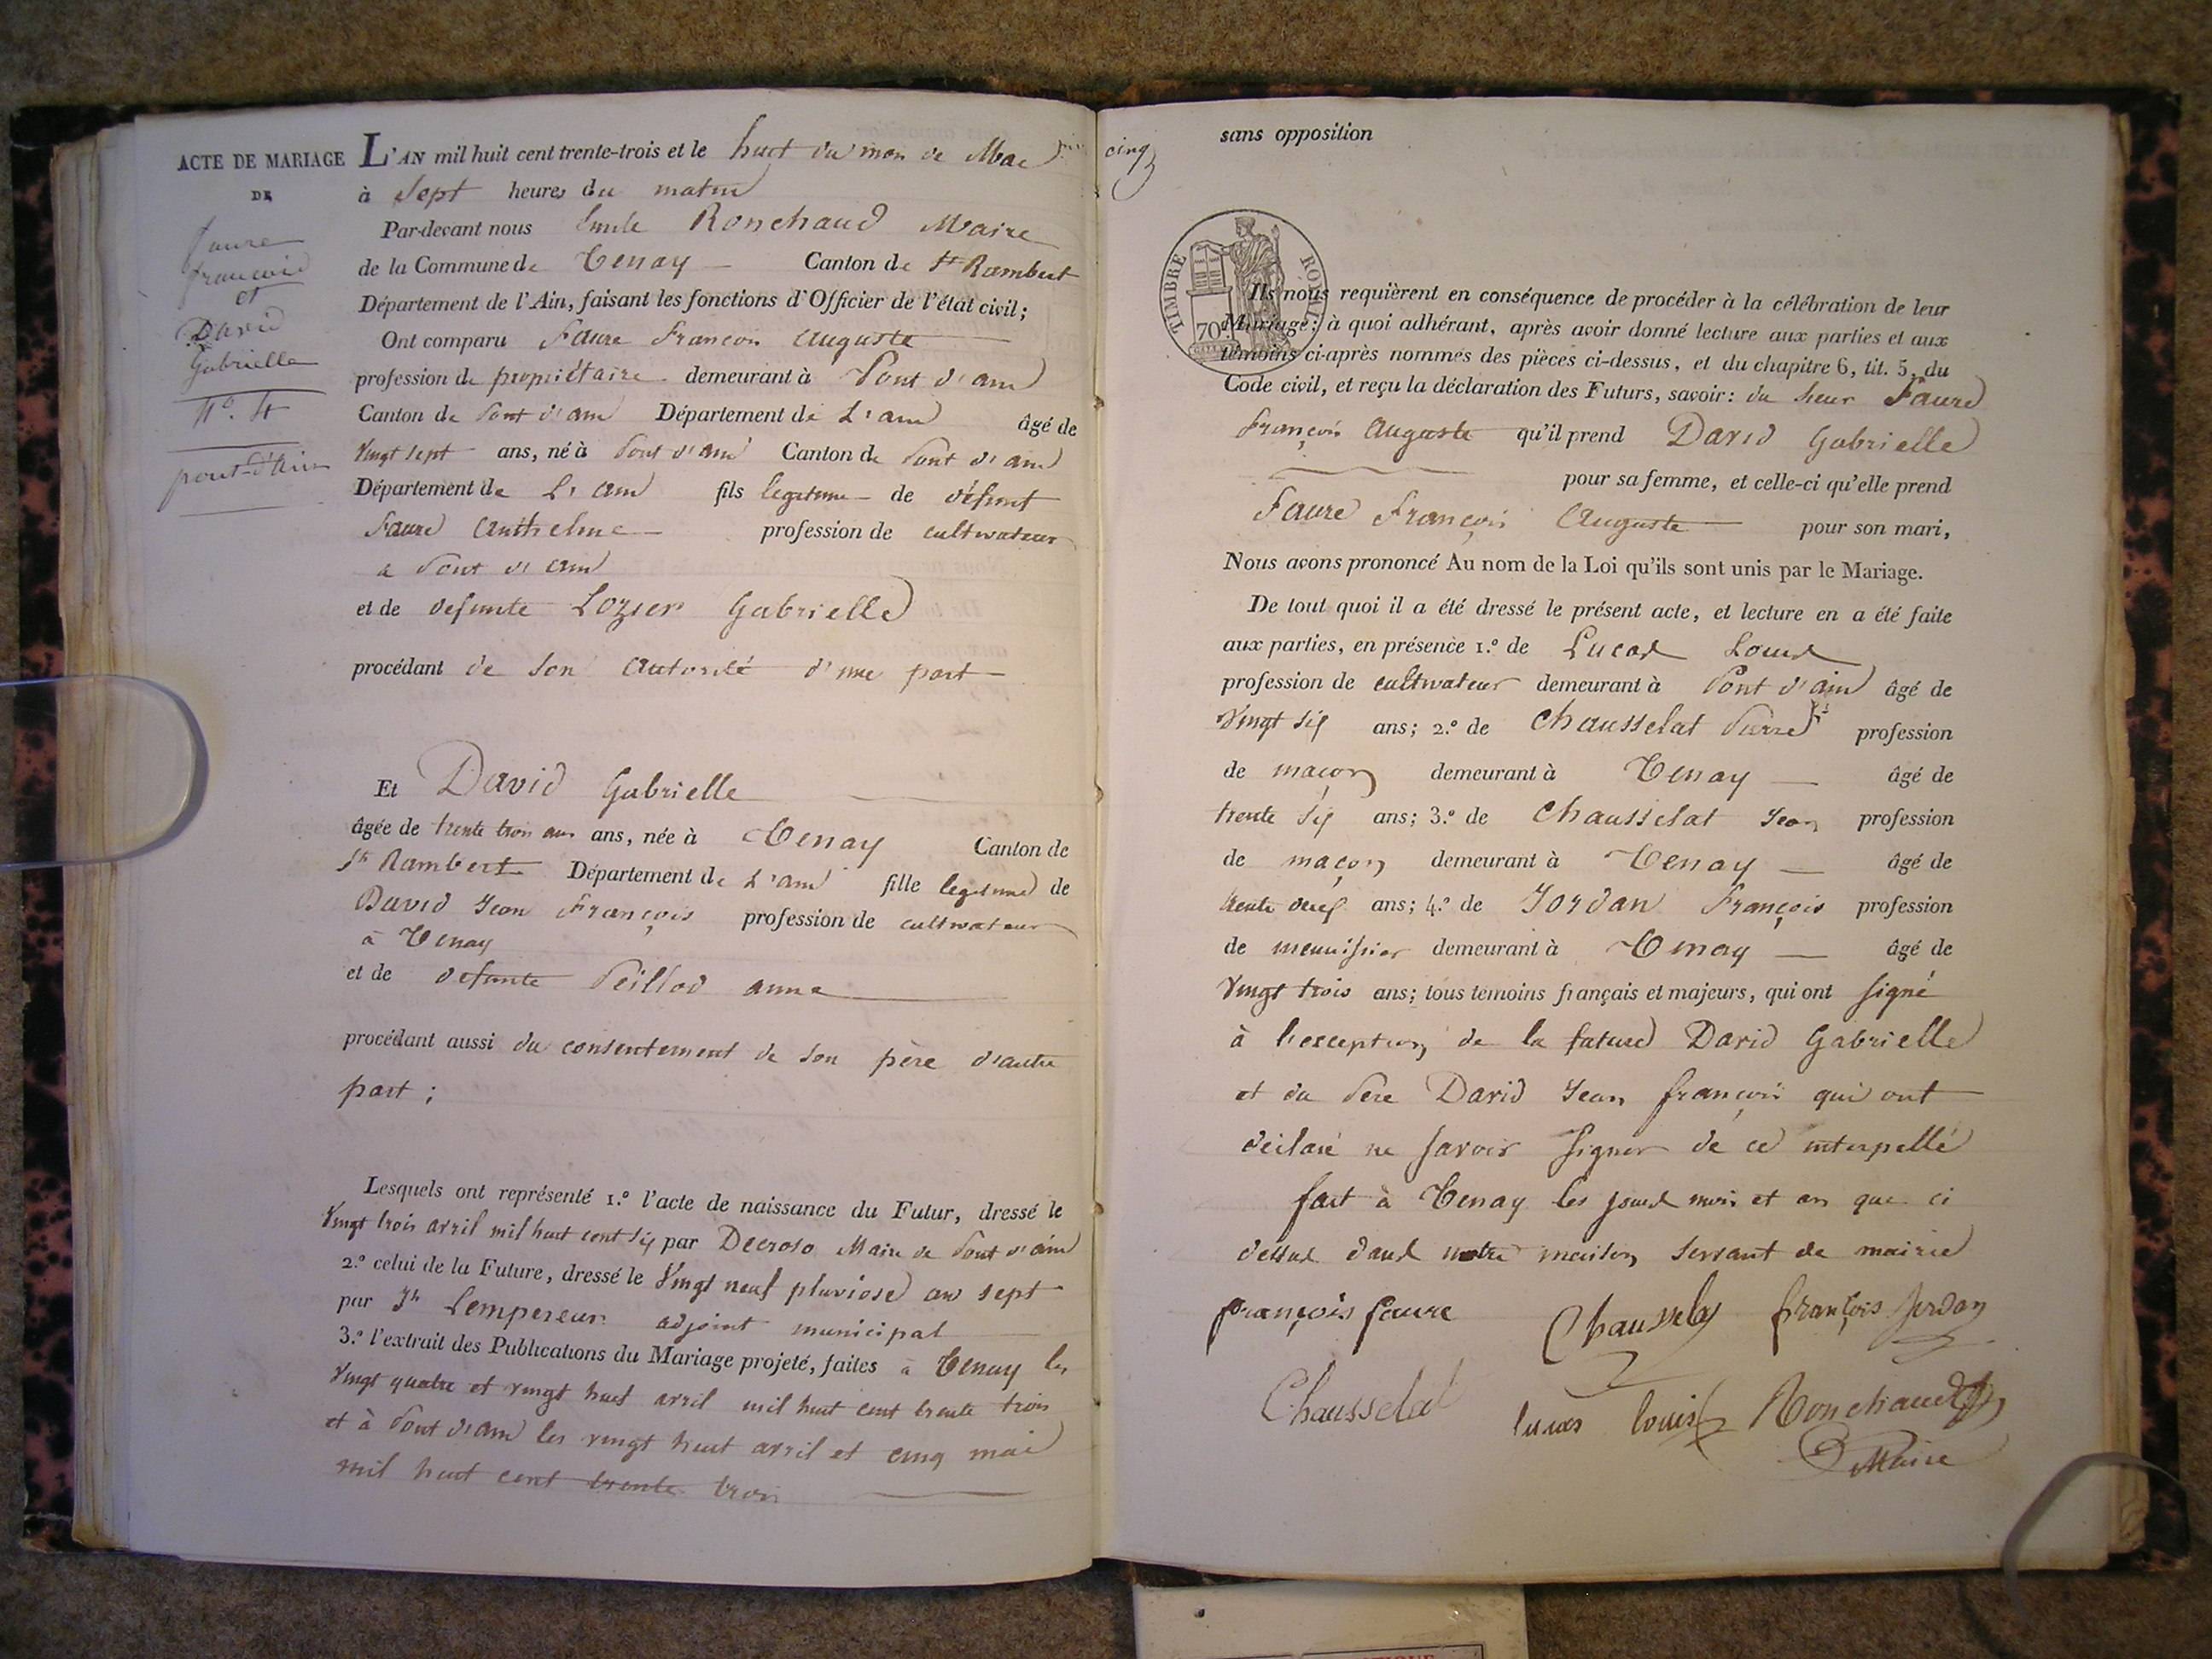 ACTE DE MARIAGE
DE
faure
francois
et
David
Gabrielle
N.º 4
pont-d'Ain
L'AN mil huit cent trente-trois et le huit du mois de Mai
à Sept heures du matin
Par-devant nous Emile Ronchaud Maire
de la Commune de Tenay Canton de St Rambert
Département de l'Ain, faisant les fonctions d'Officier de l'état civil;
Ont comparu Faure François Auguste
profession de propriétaire demeurant à Pont d'ain
Canton de Pont d'ain Département de L'ain âgé de
Vingt sept ans, né à Pont d'ain Canton de Pont d'ain
Département de L'ain fils legitime de défunt
Faure Anthelme profession de cultivateur
a Pont d'ain
et de defunte Lozier Gabrielle
procédant de son autorité d'une part
Et David Gabrielle
âgée de trente trois ans ans, née à Tenay Canton de
St Rambert Département de L'ain fille legitime de
David Jean François profession de cultivateur
à Tenay
et de defunte Peillod anne
procédant aussi du consentement de son père d'autre
part ;
Lesquels ont représenté 1.º l'acte de naissance du Futur, dressé le
Vingt trois avril mil huit cent six par Decroso Maire de Pont d'ain
2.º celui de la Future, dressé le Vingt neuf pluviose an sept
par Jh Lempereur adjoint municipal
3.º l'extrait des Publications du Mariage projeté, faites à Tenay les
Vingt quatre et vingt huit avril mil huit cent trente trois
et à Pont d'ain les vingt huit avril et cinq mai
mil huit cent trente trois
cinq
sans opposition
TIMBRE ROYAL
70
Ils nous requièrent en conséquence de procéder à la célébration de leur
Mariage: à quoi adhérant, après avoir donné lecture aux parties et aux
témoins ci-après nommés des pièces ci-dessus, et du chapitre 6, tit. 5, du
Code civil, et reçu la déclaration des Futurs, savoir: du sieur Faure
François Auguste qu'il prend David Gabrielle
pour sa femme, et celle-ci qu'elle prend
Faure François Auguste pour son mari,
Nous avons prononcé Au nom de la Loi qu'ils sont unis par le Mariage.
De tout quoi il a été dressé le présent acte, et lecture en a été faite
aux parties, en présence 1.º de Lucas Louis
profession de cultivateur demeurant à Pont d'ain âgé de
Vingt six ans; 2.º de Chausselat Pierre profession
de maçon demeurant à Tenay âgé de
trente six ans; 3.º de Chausselat Jean profession
de maçon demeurant à Tenay âgé de
trente deux ans; 4.º de Jordan François profession
de menuisier demeurant à Tenay âgé de
Vingt trois ans; tous témoins français et majeurs, qui ont signé
à l'exception de la future David Gabrielle
et du Pere David Jean françois qui ont
déclaré ne savoir signer de ce interpellé
fait à Tenay les jours mois et an que ci
dessus dans notre maison servant de mairie
françois faure Chausselat françois Jordan
Chausselat lucas louis Ronchaud
Maire